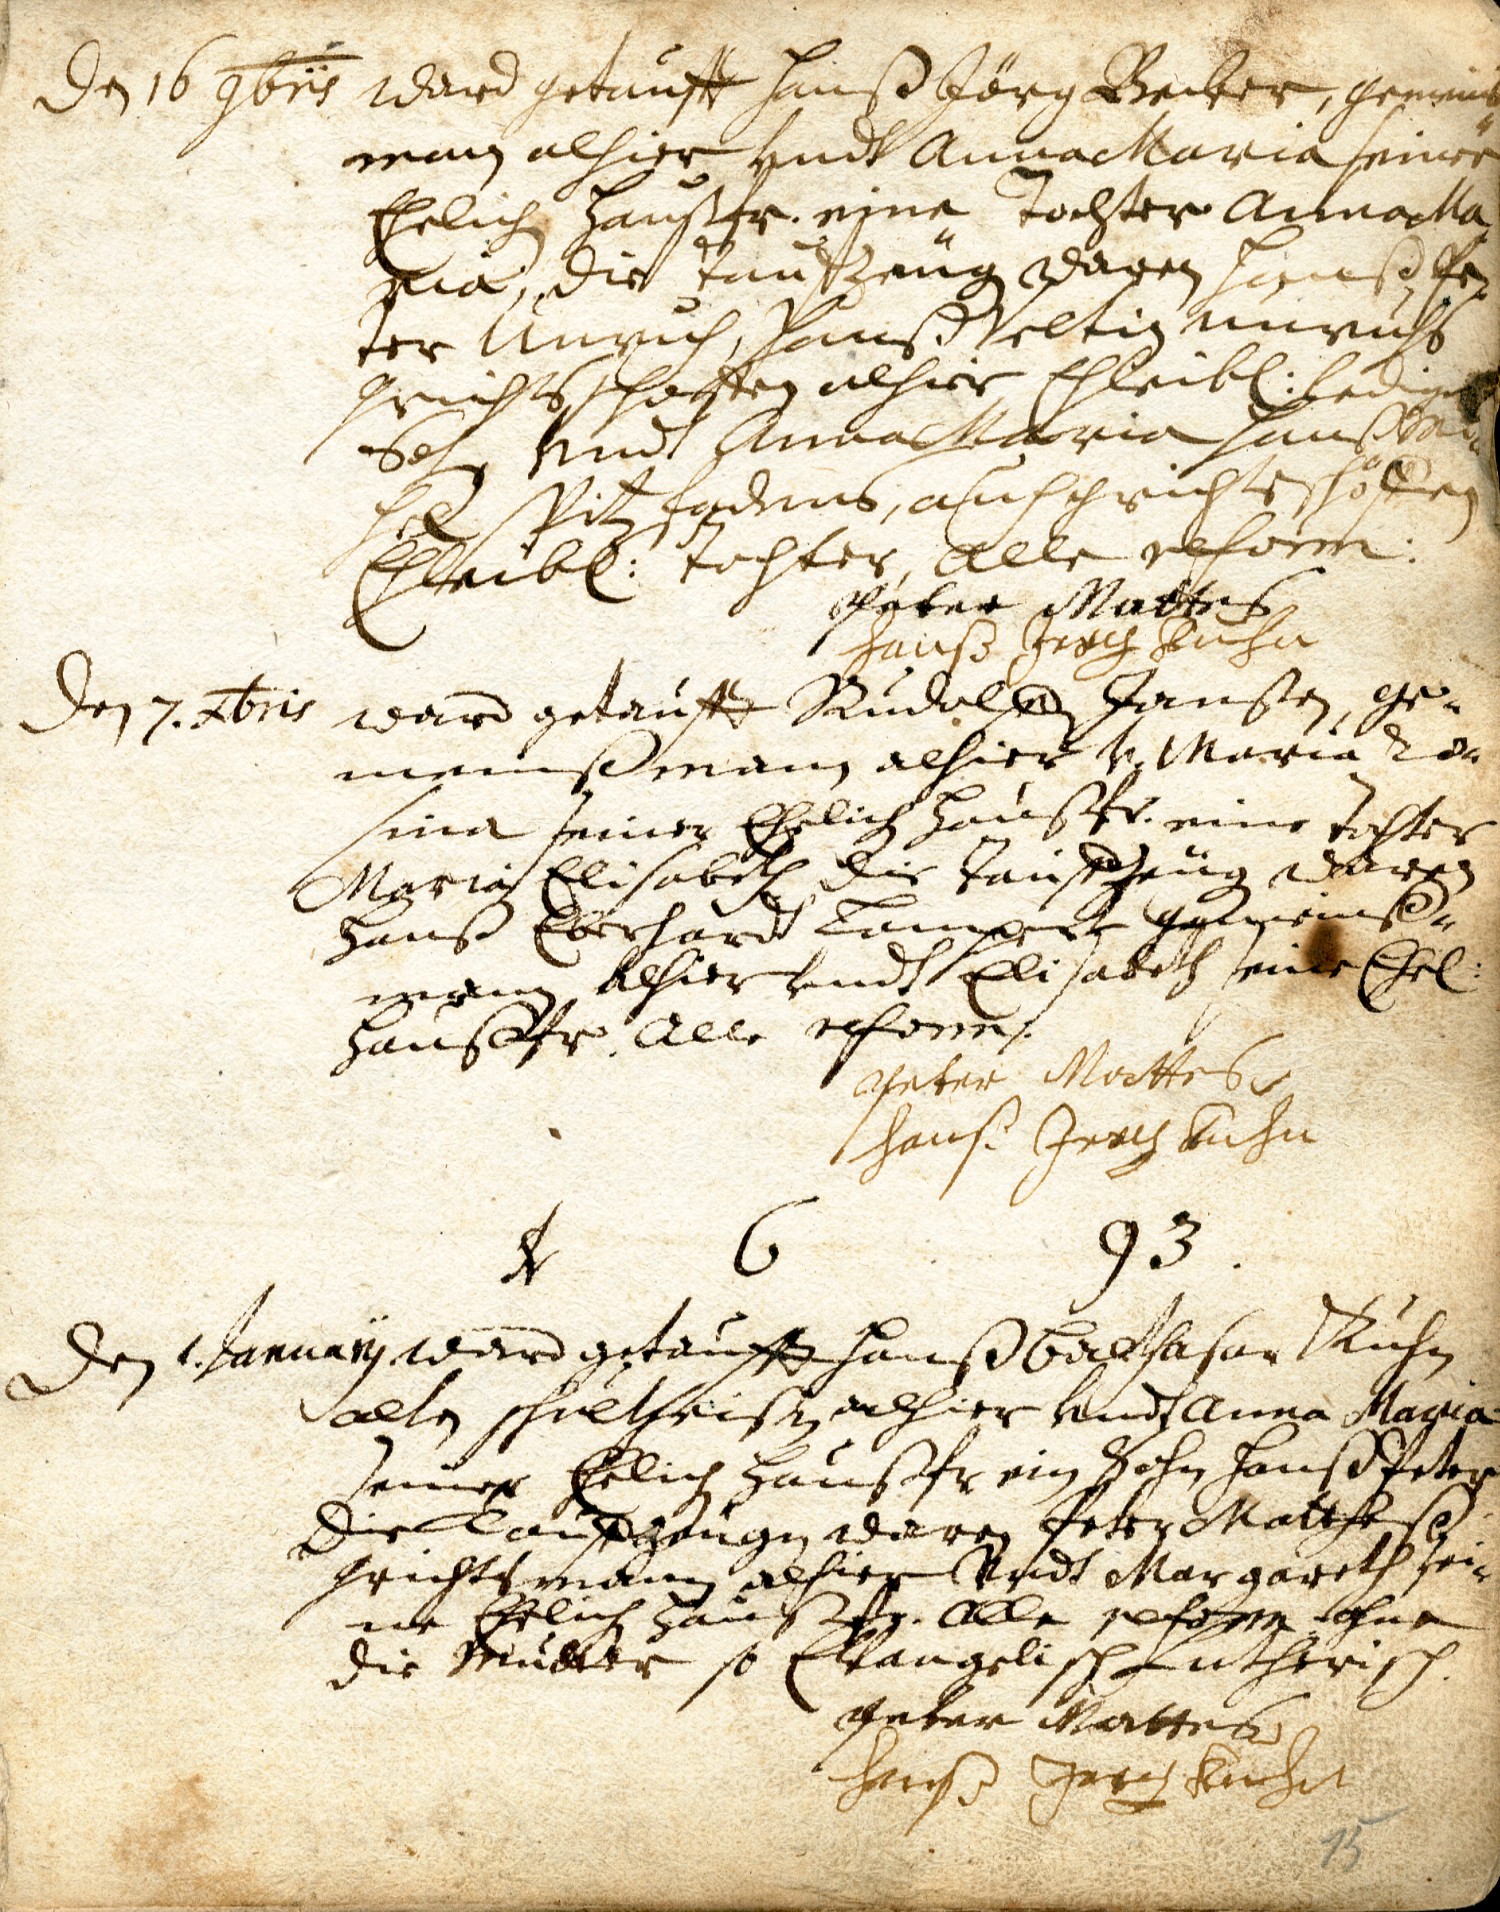 Den 16 9bris ward getaufft Hanß Jörg Becker, gemeinß
man alhier undt Anna Maria seiner
Ehelich haußfr. eine tochter Anna Ma
ria, die tauffzeüg waren Hanß Pe
ter Unruh, Hanß Veltin Unruhs
grichtsschöffen alhier Ehleibl: ledig
Sohn undt Anna Maria Hanß
Spitzfadens, auch grichtsschöffen
Ehleibl: tochter, alle reform:
Peter Mattes
Hanß Jerg Kuhn
Den 7. Xbris ward getaufft Rudolff Janßen, ge-
meinßman alhier v. Maria Ro-
sina seiner Ehelich haußfr. eine tochter
Maria Elisabeth, die Tauffzeüg waren
Hanß Eberhardt Lampert gemeinß-
man alhier undt Elisabeth seine Ehel:
haußfr. alle reform:
Peter Mattes
Hanß Jerg Kuhn
1 6 93.
Den 1. January ward getaufft Hanß Balthasar Kuhn
alten schultheißen alhier undt Anna Maria
seiner Ehelich haußfr ein Sohn Hanß Peter
Die Tauffzeugen waren Peter Mattheß
grichtsmann alhier undt Margareth sei-
ne Ehelich haußfr. alle reform ohne
die Mutter so Evangelisch Lutherisch.
Peter Mattes
Hanß Jerg Kuhn
15